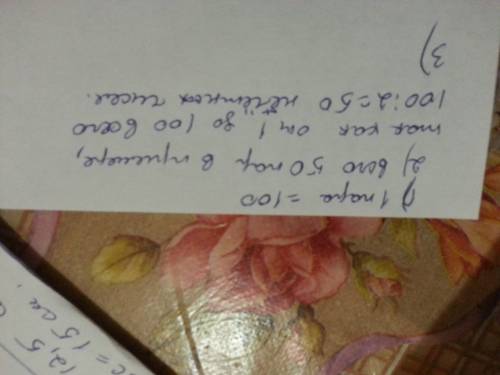 1) 1 пара = 100
2) всего 50 пар в примере,
так как от 1 до 100 всего
100:2=50 нечётных чисел.
3)
12,5
= 15 см.